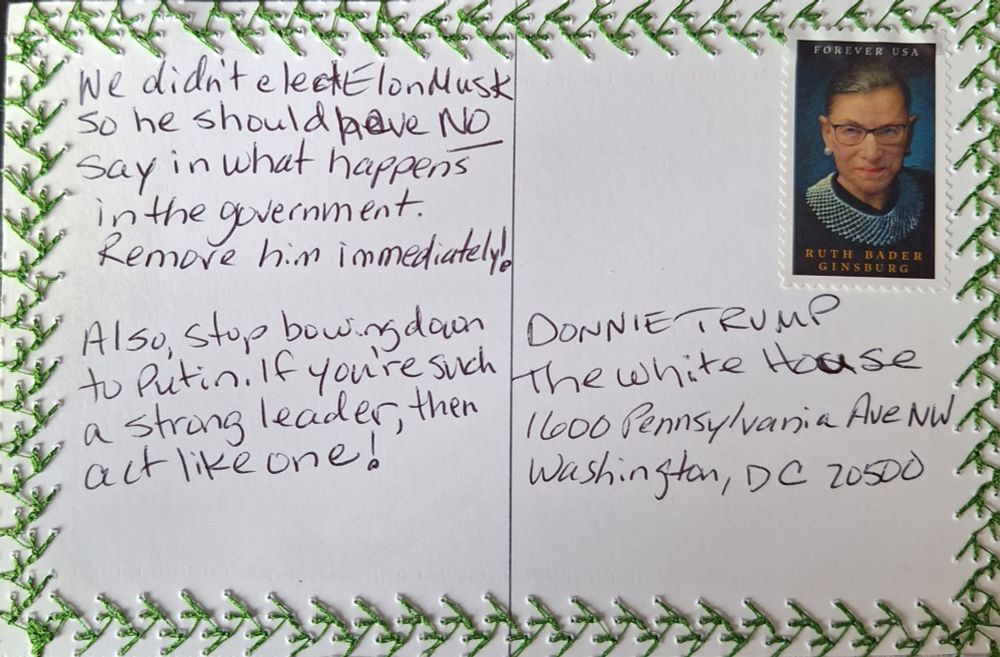 We didn't elect Elon Musk
so he should have NO
say in what happens
in the government.
Remove him immediately!
Also, stop bowing down
to Putin. If you're such
a strong leader, then
act like one!
FOREVER USA
RUTH BADER
GINSBURG
DONNIE TRUMP
The White House
1600 Pennsylvania Ave NW
Washington, DC 20500